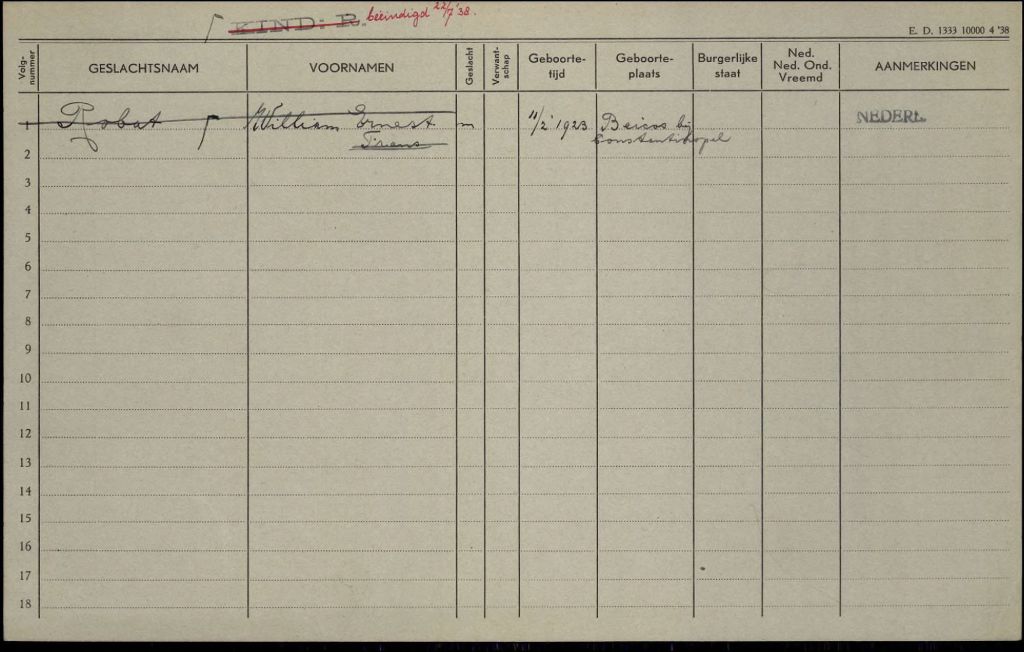 KIND: R. beëindigd 22/7 '38.
E. D. 1333 10000 4 '38
Volg-nummer GESLACHTSNAAM VOORNAMEN Geslacht Verwant-schap Geboorte-tijd Geboorte-plaats Burgerlijke staat Ned. Ned. Ond. Vreemd AANMERKINGEN
1 Robat William Ernest m 11/2 1923 Beicos bij NEDERL.
Frans Constantinopel
2
3
4
5
6
7
8
9
10
11
12
13
14
15
16
17
18